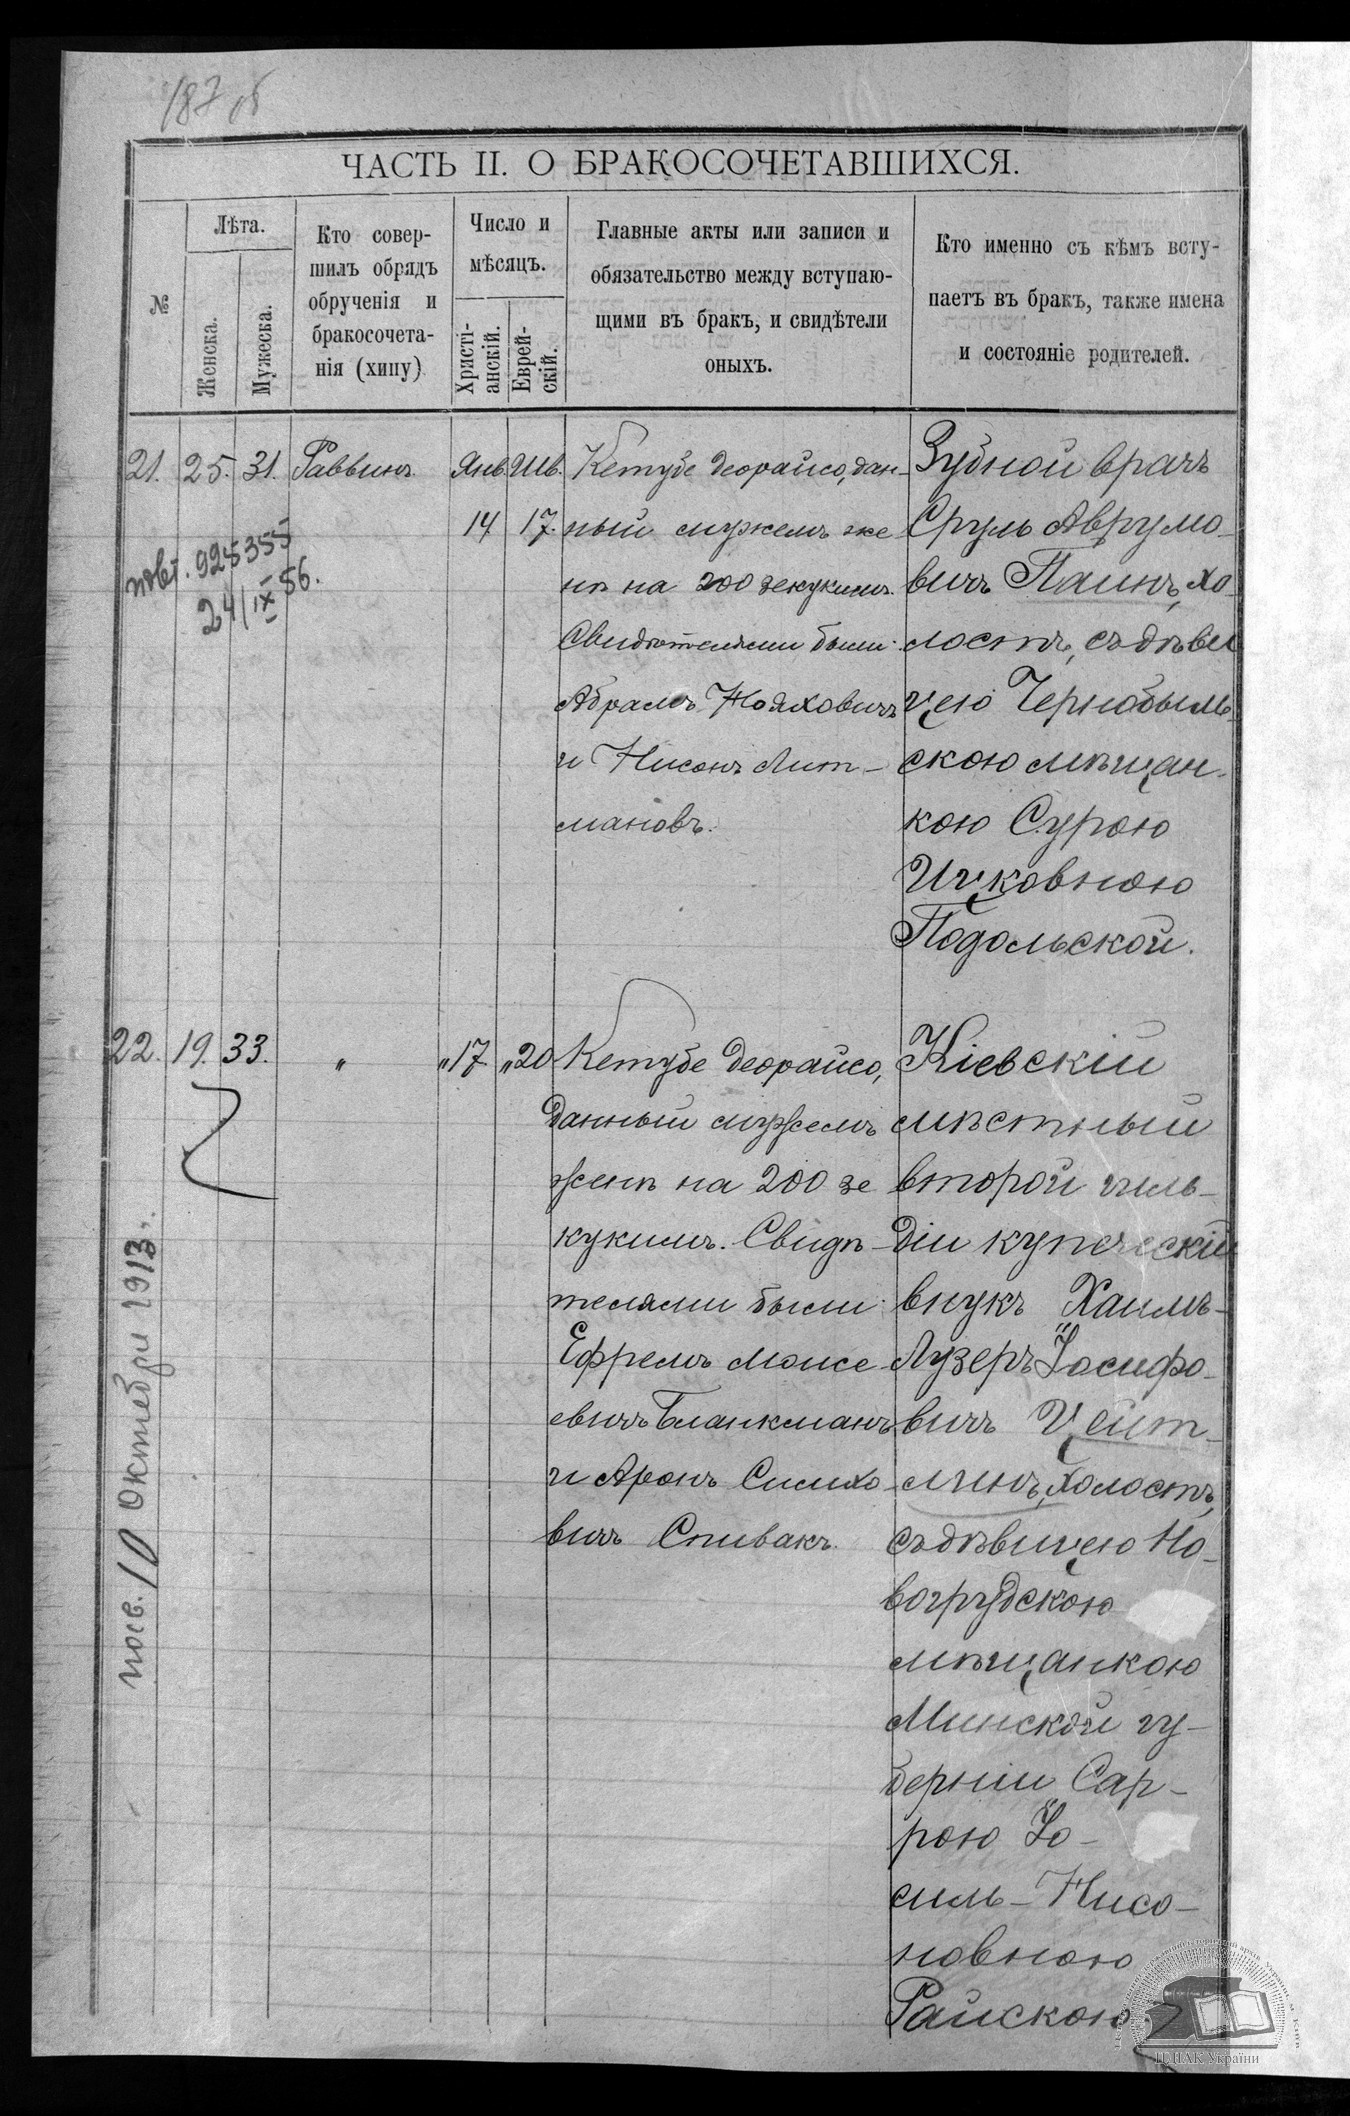 187 об
ЧАСТЬ II. О БРАКОСОЧЕТАВШИХСЯ.
№
Лѣта.
Женска.
Мужеска.
Кто совер-
шилъ обрядъ
обрученія и
бракосочета-
нія (хипу)
Число и
мѣсяцъ.
Христі-
анскій.
Еврей-
скій.
Главные акты или записи и
обязательство между вступаю-
щими въ бракъ, и свидѣтели
оныхъ.
Кто именно съ кѣмъ всту-
паетъ въ бракъ, также имена
и состояніе родителей.
21. 25. 31. Раввинъ Янв. Шв.
14 17.
Кетубе деорайсо, дан-
ный мужемъ же
нѣ на 200 зекукимъ.
Свидѣтелями были:
Абрамъ Нояховичъ
и Нисонъ Лит-
мановъ.
Зубной врачъ
Сруль Аврумо-
вичъ Паинъ, хо-
лостъ, съ дѣви
цею Чернобыль-
скою мѣщан-
кою Сурою
Ицковною
Подольской.
повт. 925355
24/IX 56.
22. 19. 33. " "17. "20
Кетубе деорайсо,
данный мужемъ
женѣ на 200 зе
кукимъ. Свидѣ-
телями были:
Ефремъ Моисе-
евичъ Бланкманъ
и Аронъ Симхо-
вичъ Спивакъ.
Кіевскій
мѣстный
второй гиль-
діи купеческій
внукъ Хаимъ-
Лузеръ Іосифо-
вичъ Цейт-
линъ, холостъ,
съ дѣвицею Но-
вогрудскою
мѣщанкою
Минской гу-
берніи Сар-
рою Іо-
силь-Нисо-
новною
Райскою.
посв. 10 Октября 1913 г.
ЦДІАК України